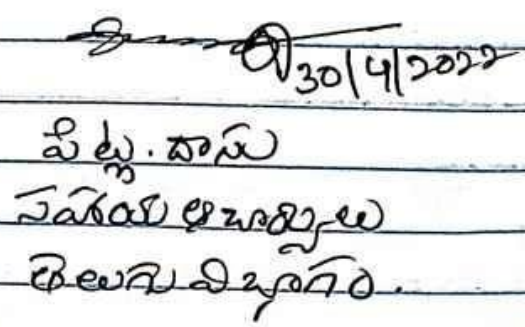 30/4/2022
పిట్ల. దాసు
సహాయ ఆచార్యులు
తెలుగు విభాగం.